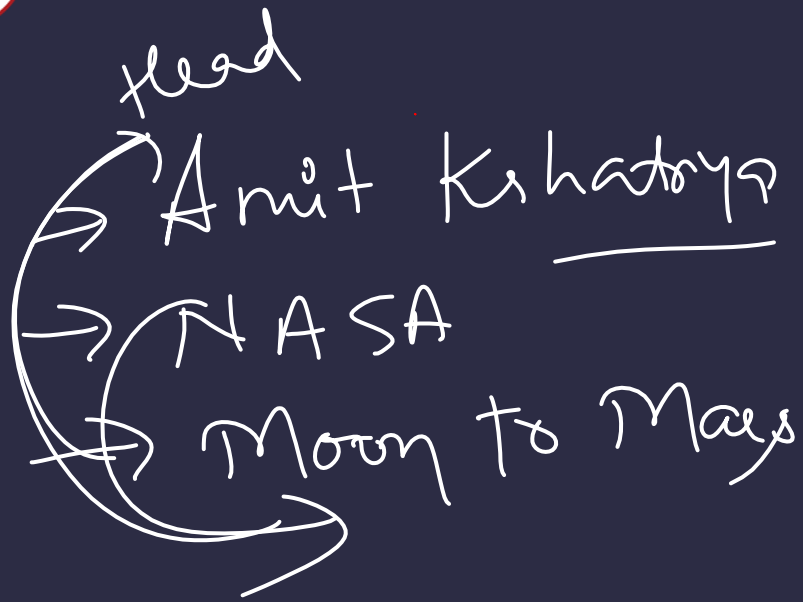 Head
Amit Kshatrya
NASA
Moon to Mars